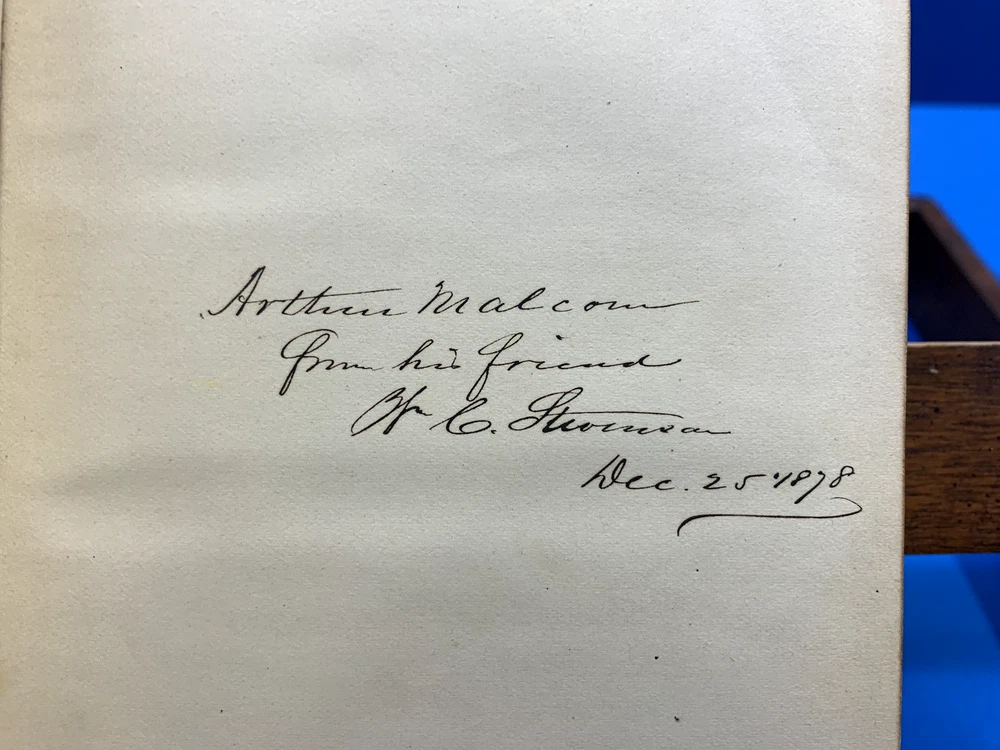 Arthur Malcom
from his friend
Wm C. Stevenson
Dec. 25 1878